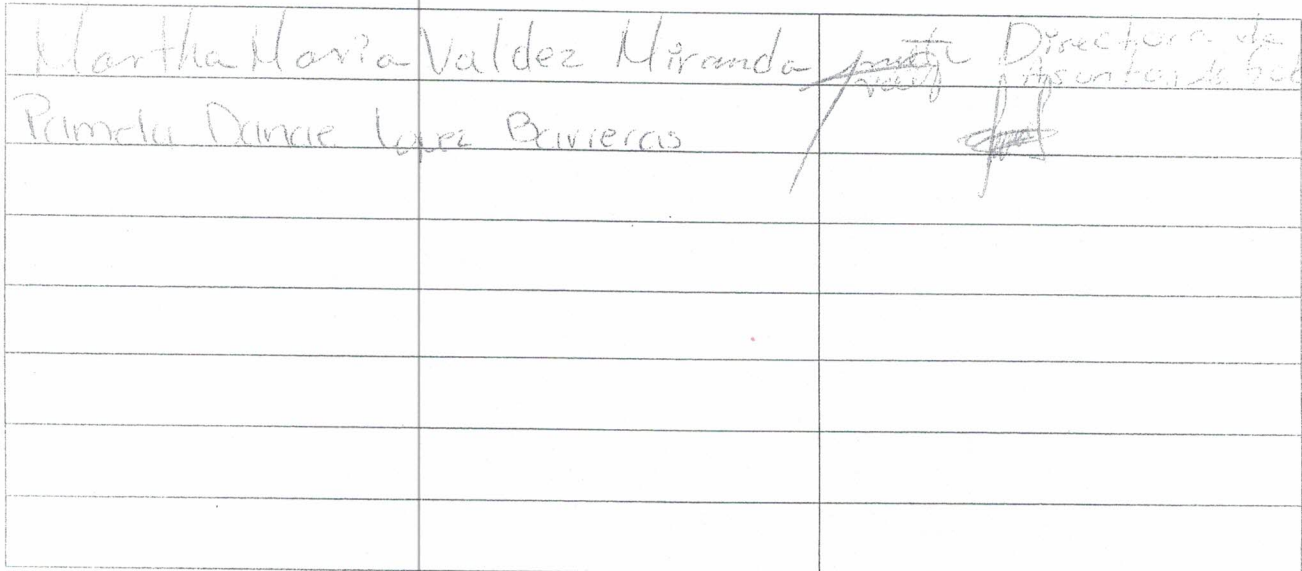 Martha Maria Valdez Miranda Directora de
Asuntos de
Pamela Danae Lopez Bavieras